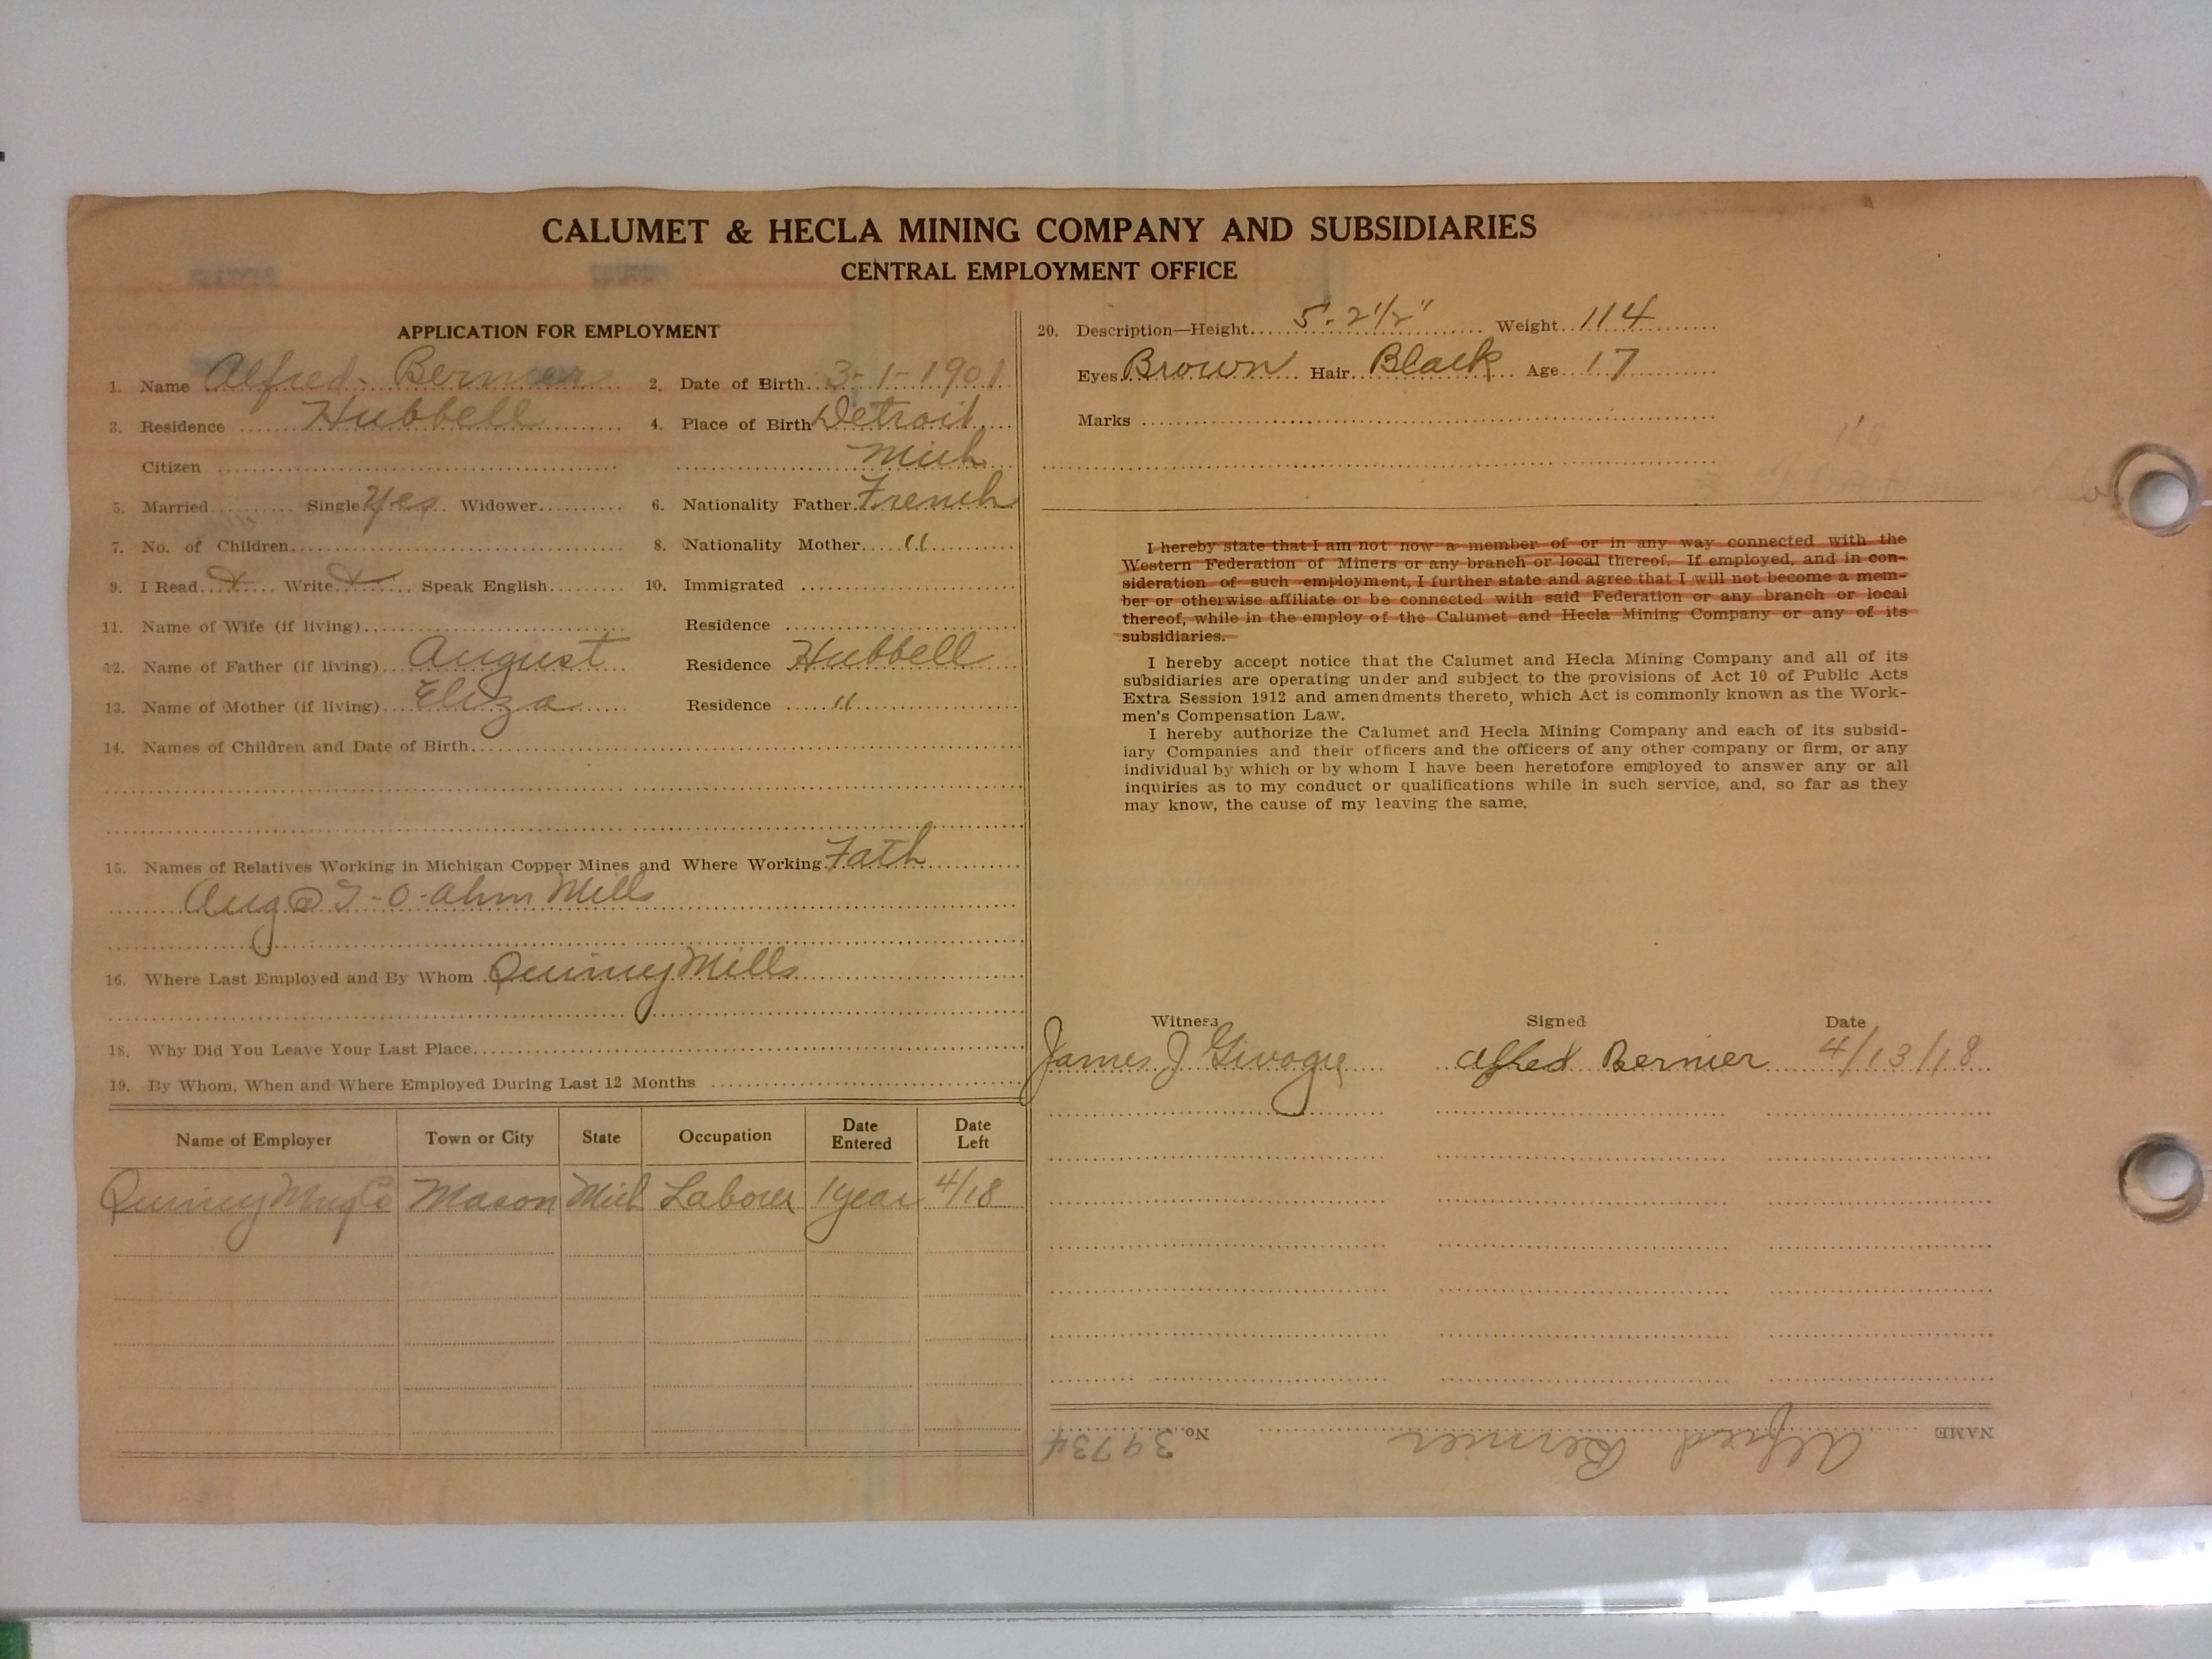 CALUMET & HECLA MINING COMPANY AND SUBSIDIARIES
CENTRAL EMPLOYMENT OFFICE
APPLICATION FOR EMPLOYMENT
1. Name Alfred Bernier 2. Date of Birth 3-1-1901
3. Residence Hubbell 4. Place of Birth Detroit
Citizen Mich
5. Married Single Yes Widower 6. Nationality Father French
7. No. of Children 8. Nationality Mother "
9. I Read X Write X Speak English 10. Immigrated
11. Name of Wife (if living) Residence
12. Name of Father (if living) August Residence Hubbell
13. Name of Mother (if living) Eliza Residence "
14. Names of Children and Date of Birth
15. Names of Relatives Working in Michigan Copper Mines and Where Working Fath
Aug @ Mills
16. Where Last Employed and By Whom Quincy Mills
18. Why Did You Leave Your Last Place
19. By Whom, When and Where Employed During Last 12 Months
Name of Employer Town or City State Occupation Date Entered Date Left
Quincy Mng Co Mason Mich Laborer 1 year 4/18
20. Description—Height 5'-2 1/2" Weight 114
Eyes Brown Hair Black Age 17
Marks
I hereby state that I am not now a member of or in any way connected with the
Western Federation of Miners or any branch or local thereof. If employed, and in con-
sideration of such employment, I further state and agree that I will not become a mem-
ber or otherwise affiliate or be connected with said Federation or any branch or local
thereof, while in the employ of the Calumet and Hecla Mining Company or any of its
subsidiaries.
I hereby accept notice that the Calumet and Hecla Mining Company and all of its
subsidiaries are operating under and subject to the provisions of Act 10 of Public Acts
Extra Session 1912 and amendments thereto, which Act is commonly known as the Work-
men's Compensation Law.
I hereby authorize the Calumet and Hecla Mining Company and each of its subsid-
iary Companies and their officers and the officers of any other company or firm, or any
individual by which or by whom I have been heretofore employed to answer any or all
inquiries as to my conduct or qualifications while in such service, and, so far as they
may know, the cause of my leaving the same.
Witness Signed Date
James J Alfred Bernier 4/13/18
NAME Alfred Bernier No. 39734